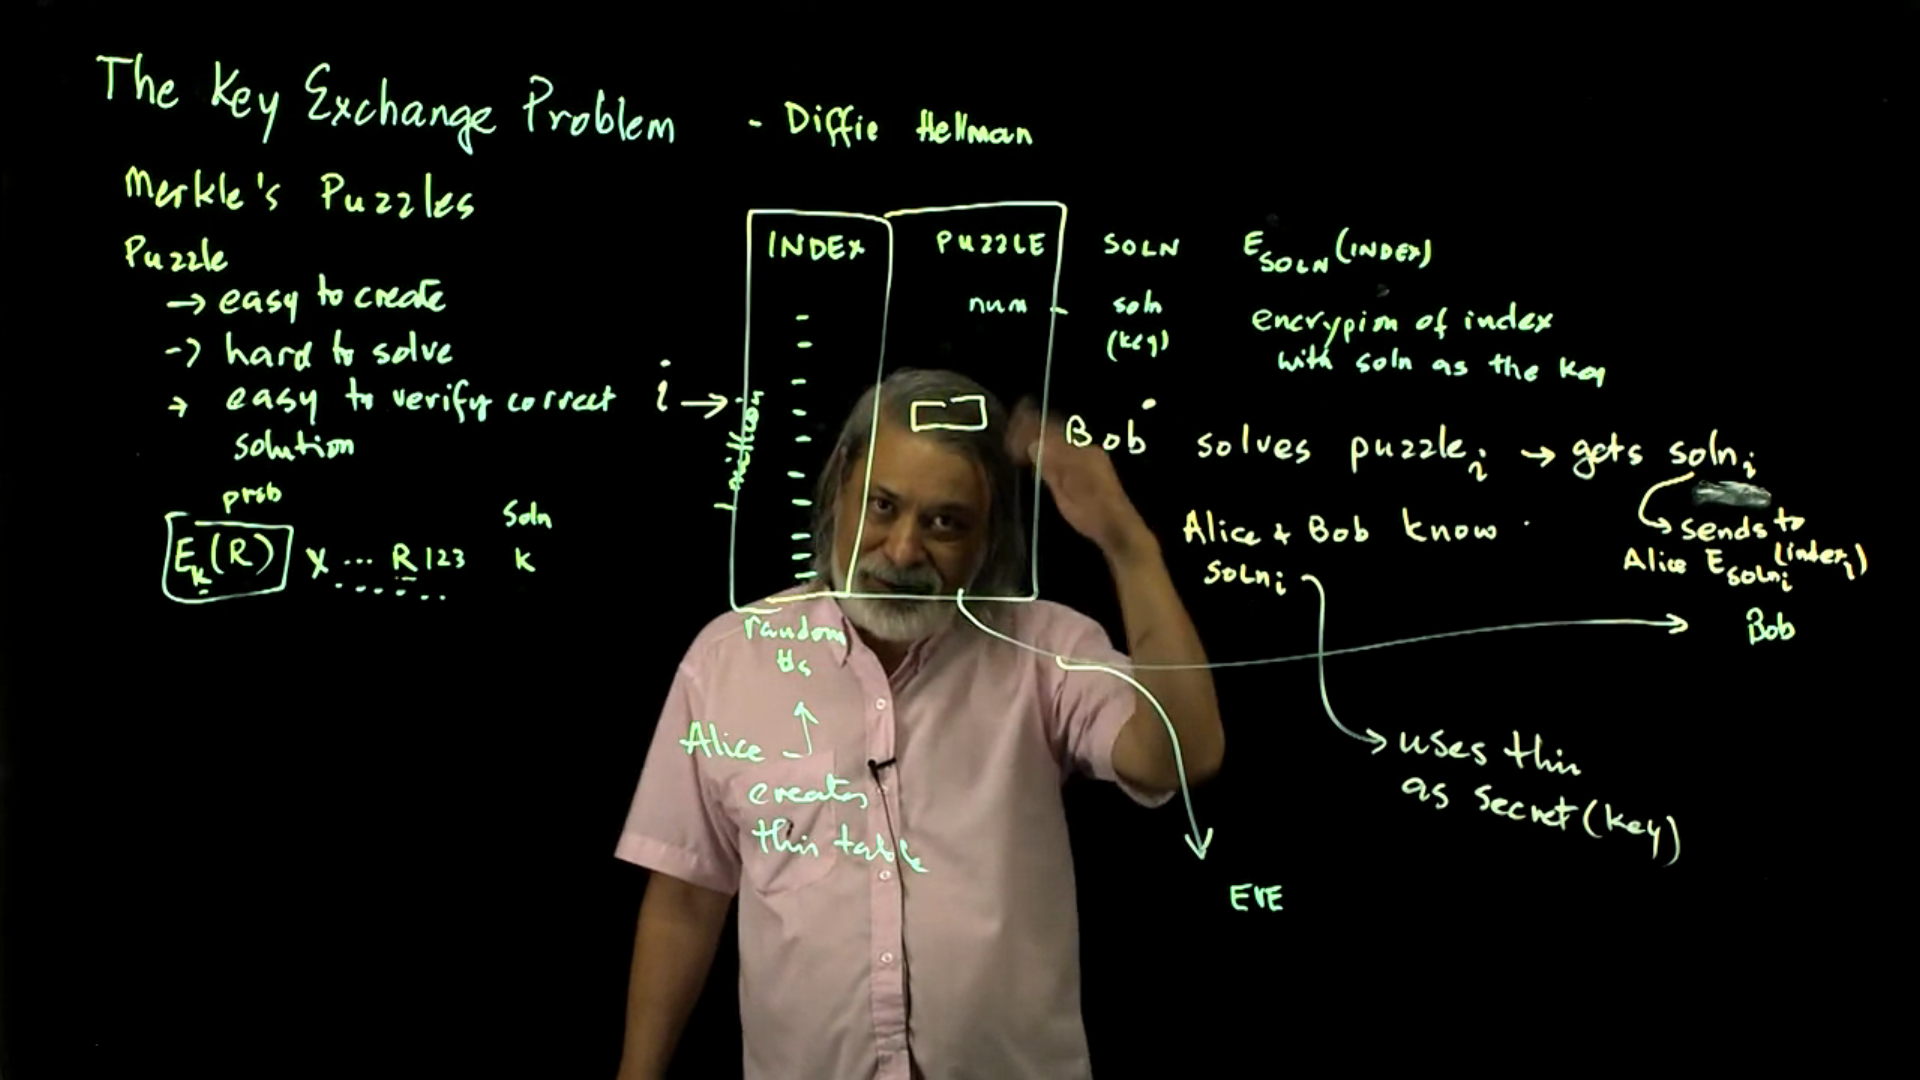 The Key Exchange Problem - Diffie Hellman
Merkle's Puzzles
Puzzle
→ easy to create
→ hard to solve
→ easy to verify correct
solution
prob
Soln
E_k(R) X ... R 123 k
i →
1 million
INDEX PUZZLE SOLN E_SOLN(INDEX)
num - soln
(key)
encrypion of index
with soln as the key
Bob solves puzzle_i → gets soln_i
sends to
Alice E_soln_i(index_i)
Alice & Bob know
soln_i
Bob
random
#s
Alice
creates
this table
uses this
as secret (key)
EVE